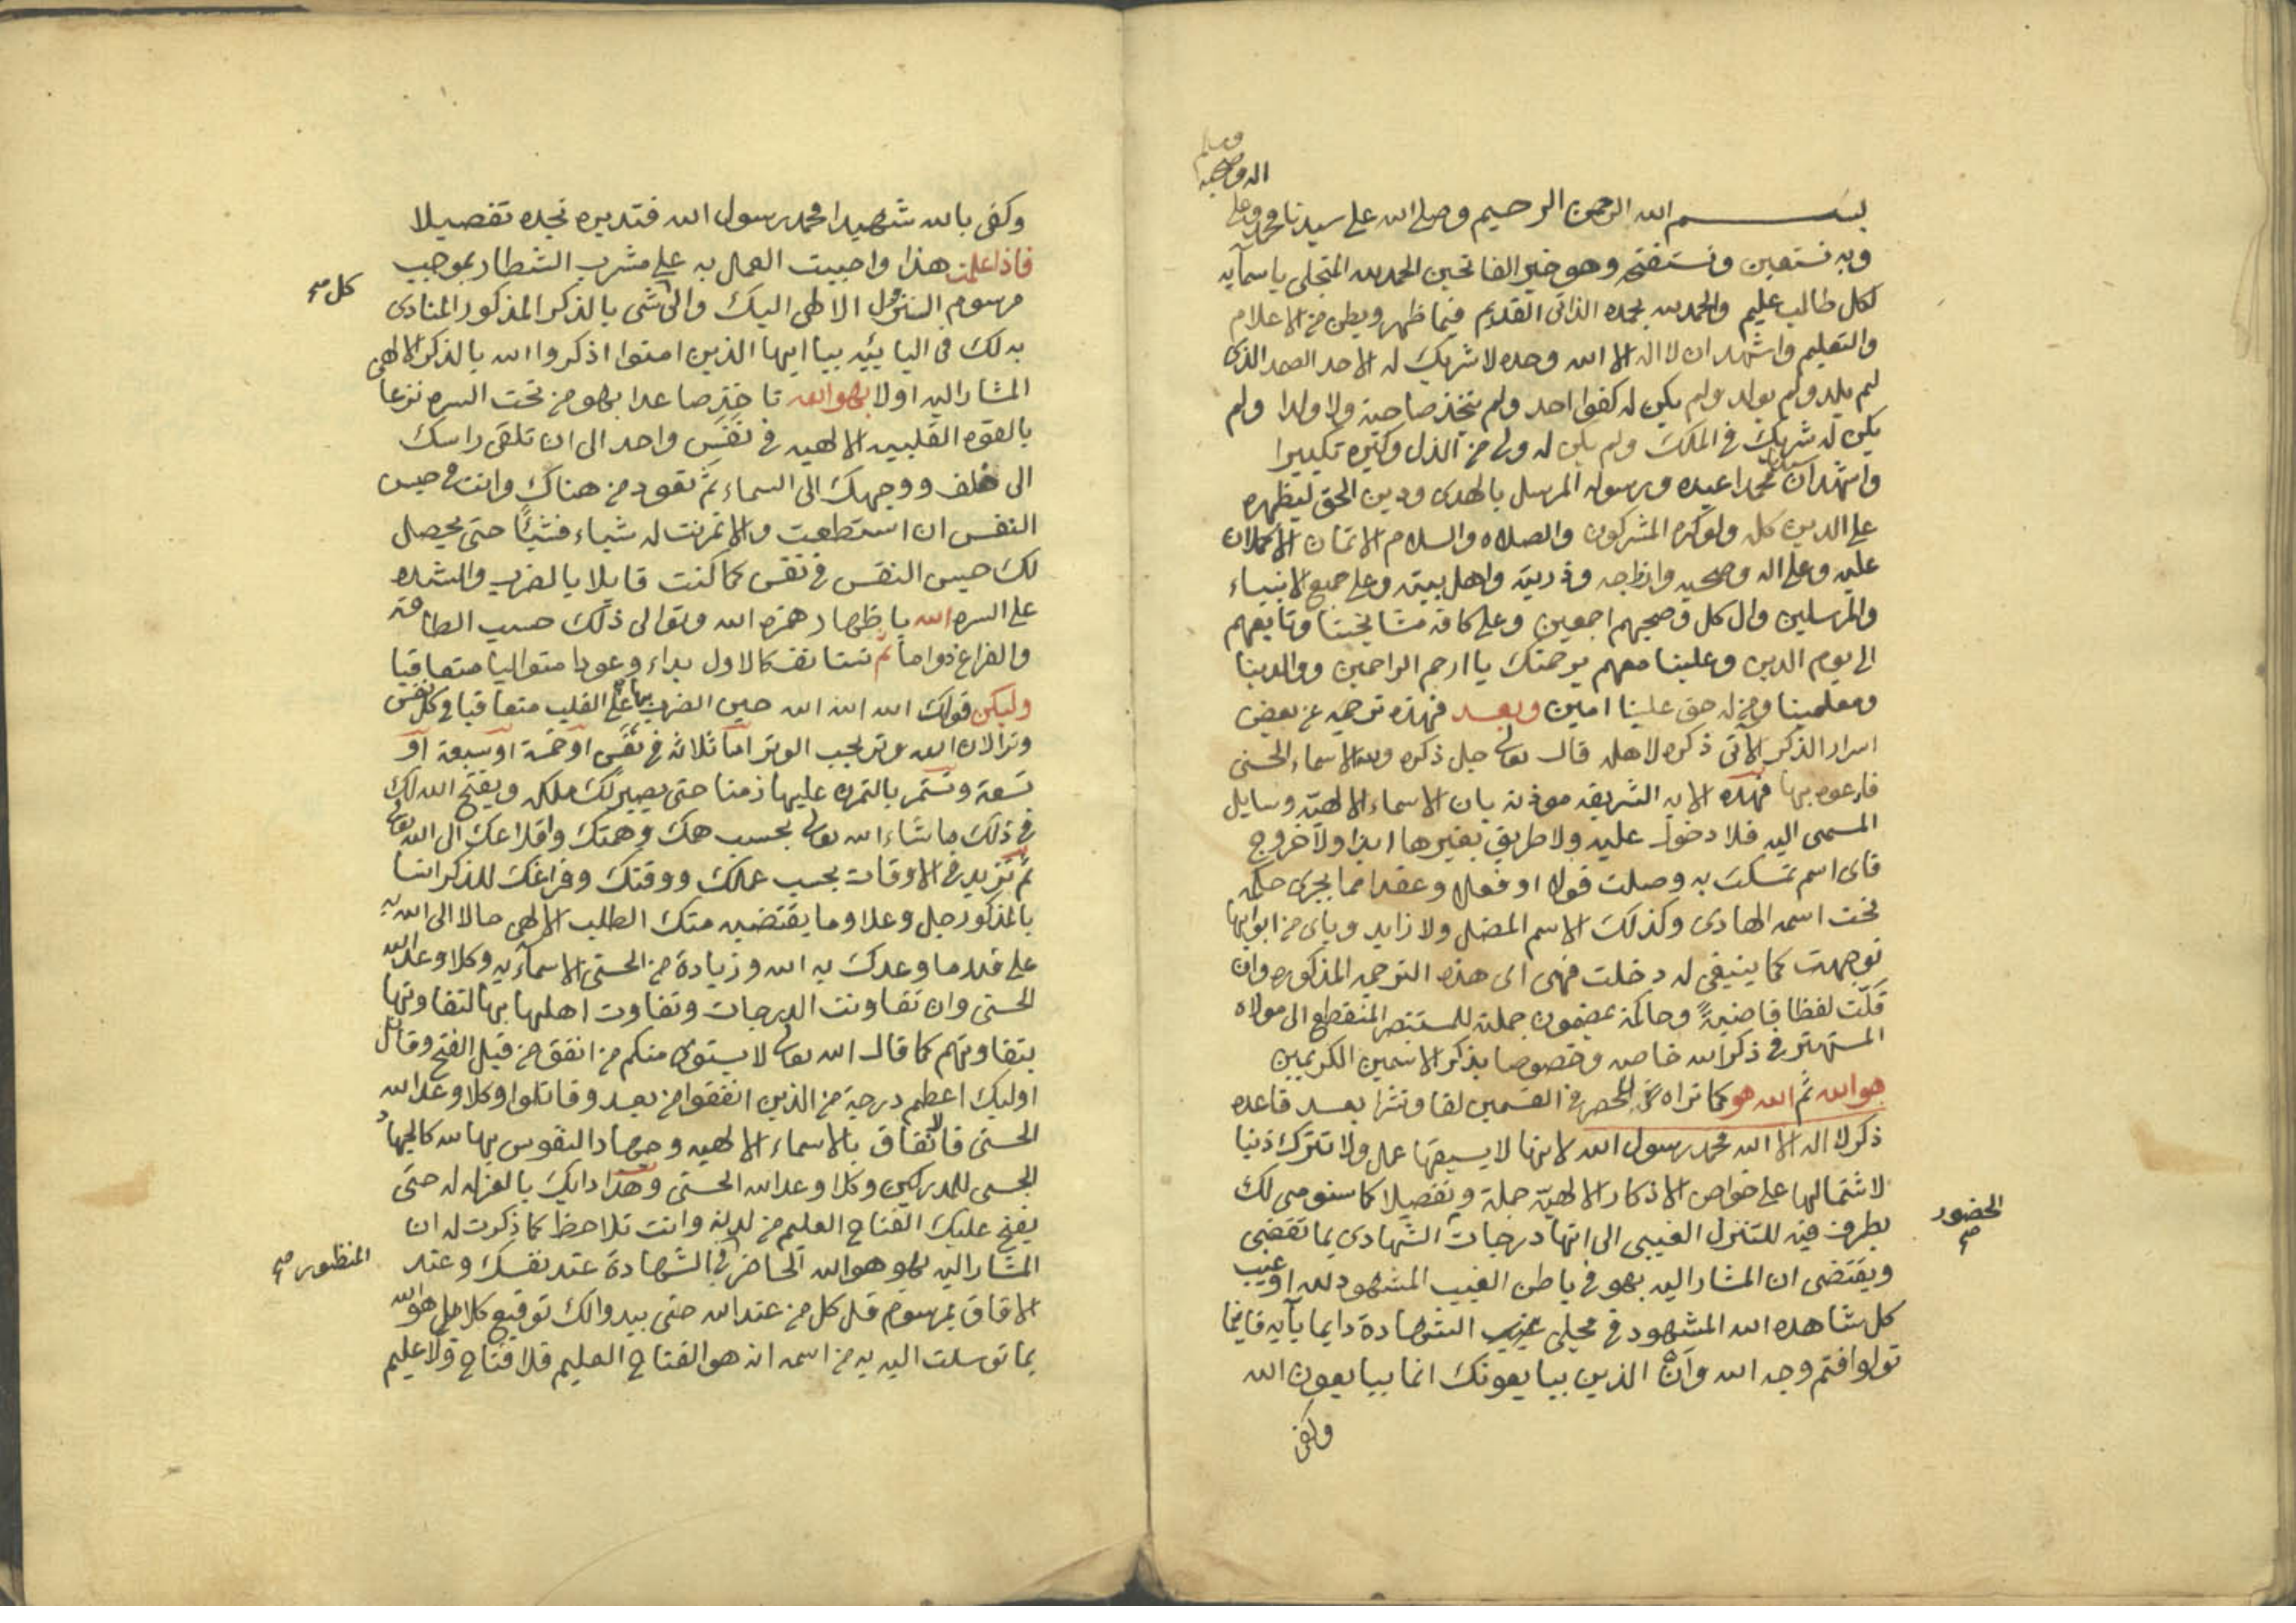 بسم الله الرحمن الرحيم وصلى الله على سيدنا محمد وعلى
اله وصحبه
وسلم
وبه نستعين ونستفتح وهو خير الفاتحين الحمد لله المتجلى باسمآيه
لكل طالب عليم والحمد لله بحمده الذاتى القديم فيما ظهر وبطن من الاعلام
والتعليم واشهد ان لا اله الا الله وحده لا شريك له الاحد الصمد الذى
لم يلد ولم يولد ولم يكن له كفوا احد ولم يتخذ صاحبة ولا ولدا ولم
يكن له شريك في الملك ولم يكن له ولى من الذل وكبره تكبيرا
واشهد ان محمدا عبده ورسوله المرسل بالهدى ودين الحق ليظهره
على الدين كله ولو كره المشركون والصلاه والسلام الاتمان الاكملان
عليه وعلى اله وصحبه وازواجه وذريته واهل بيته وعلى جميع الانبياء
والمرسلين وال كل وصحبهم اجمعين وعلى كافة مشايخنا وتابعهم
الى يوم الدين وعلينا معهم برحمتك يا ارحم الراحمين ووالدينا
ومعلمينا ومن له حق علينا امين وبعد فهذه توجيه عن بعض
اسرار الذكر الآتى ذكره لاهله قال تعالى جل ذكره ولله الاسماء الحسنى
فادعوه بها فهذه الايه الشريفه موذنه بان الاسماء الالهيّه وسايل
المسمى اليه فلا دخول عليه ولا طريق بغيرها ابدا ولا خروج
فاى اسم تمسكت به وصلت قولا او فعلا وعقدا مما يجرى حكمه
تحت اسمه الهادى وكذلك الاسم المضل ولا زايد وباى من ابوابها
توجهت كما ينبغى له دخلت فهى اى هذه التوجيه المذكوره وان
قلّت لفظا حاكمة بمضمون جملته للمستبصر المنقطع الى مولاه
المستهتر في ذكر الله خاصه وخصوصا بذكر الاسمين الكريمين
هو الله ثم الله هو كما تراه الحصر في القسمين لفا ونشرا بعد قاعده
ذكر لا اله الا الله محمد رسول الله لانها لا يسبقها عمل ولا تترك ذنبا
لاشتمالها على خواص الاذكار الالهيّه جملة وتفصيلا كما سنومى لك
بطرف فيه للتنزل الغيبى الى انتها درجات الشهادى بما تقضى
الحضور صح
ويقتضى ان المشار اليه بهو في باطن الغيب المشهود لله او غيب
كل شاهده الله المشهود في مجلى الشهادة دايما بآيه فاينما
تولوا فثم وجه الله وان الذين يبايعونك انما يبايعون الله
وكفى
وكفى بالله شهيدا محمد رسول الله فتدبره تجده تفصيلا
فاذا علمت هذا واحببت العمل به على مشرب الشطار بموجب
كل صح
مرسوم التنزل الالهى اليك والى شى بالذكر المذكور المنادى
بذلك في بيا ايها الذين امنوا اذكروا الله بالذكر الالهى
المشار اليه اولا بهو الله صاعدا بهو من تحت السره نزعا
بالقوه القلبيه الالهيه في نفس واحد الى ان تلقى راسك
الى خلف ووجهك الى السماء ثم تعود من هناك وانت في حبس
النفس ان استطعت والا تمرنت له شياء فشيئًا حتى يحصل
لك حبس النفس في نفس كما كنت قايلا بالضرب والشده
على السره الله باظهار همزه الله وتوالى ذلك حسب الطاقه
والفراغ دواما ثم تستانف كالاول بداء وعودا متواليا متعاقبا
وليكن قولك الله الله الله حين الضرب بها على القلب متعاقبا في كل نفس
وترا لان الله وتر يحب الوتر اما ثلاثه في نفس او خمسة او سبعة او
تسعة وتستمر بالتمره عليها زمنا حتى يصير لك ملكه ويفتح الله لك
في ذلك ما شاء الله تعالى بحسب همك وهمتك واقلاعك الى الله تعالى
ثم تزيد في الاوقات بحسب عملك ووقتك وفراغك للذكر
بالمذكور جل وعلا وما يقتضيه منك الطلب الالهى حالا الى الله به
على قدر ما وعدك به الله وزيادة من الحسنى الاسمآيه وكلا وعد الله
الحسنى وان تفاوتت الدرجات وتفاوت اهلها بها لتفاوتها
بتفاوتهم كما قال الله تعالى لا يستوى منكم من انفق من قبل الفتح وقاتل
اوليك اعظم درجة من الذين انفقوا من بعد وقاتلوا وكلا وعد الله
الحسنى فالانفاق بالاسماء الالهيه وجهاد النفوس بها لله كالجهاد
الحسى للمدركين وكلا وعد الله الحسنى وهذا دابك بالعزله له حتى
يفتح عليك الفتاح العليم من لدنه وانت تلاحظ كما ذكرت له ان
المشار اليه بهو هو الله الحاضر في الشهادة عند نفسك وعند
المنظور صح
الافاق بمرسوم قل كل من عند الله حتى يبدو لك توقيع كلا بل هو الله
بما توسلت اليه به من اسمه انه هو الفتاح العليم فلا فتاح ولا عليم